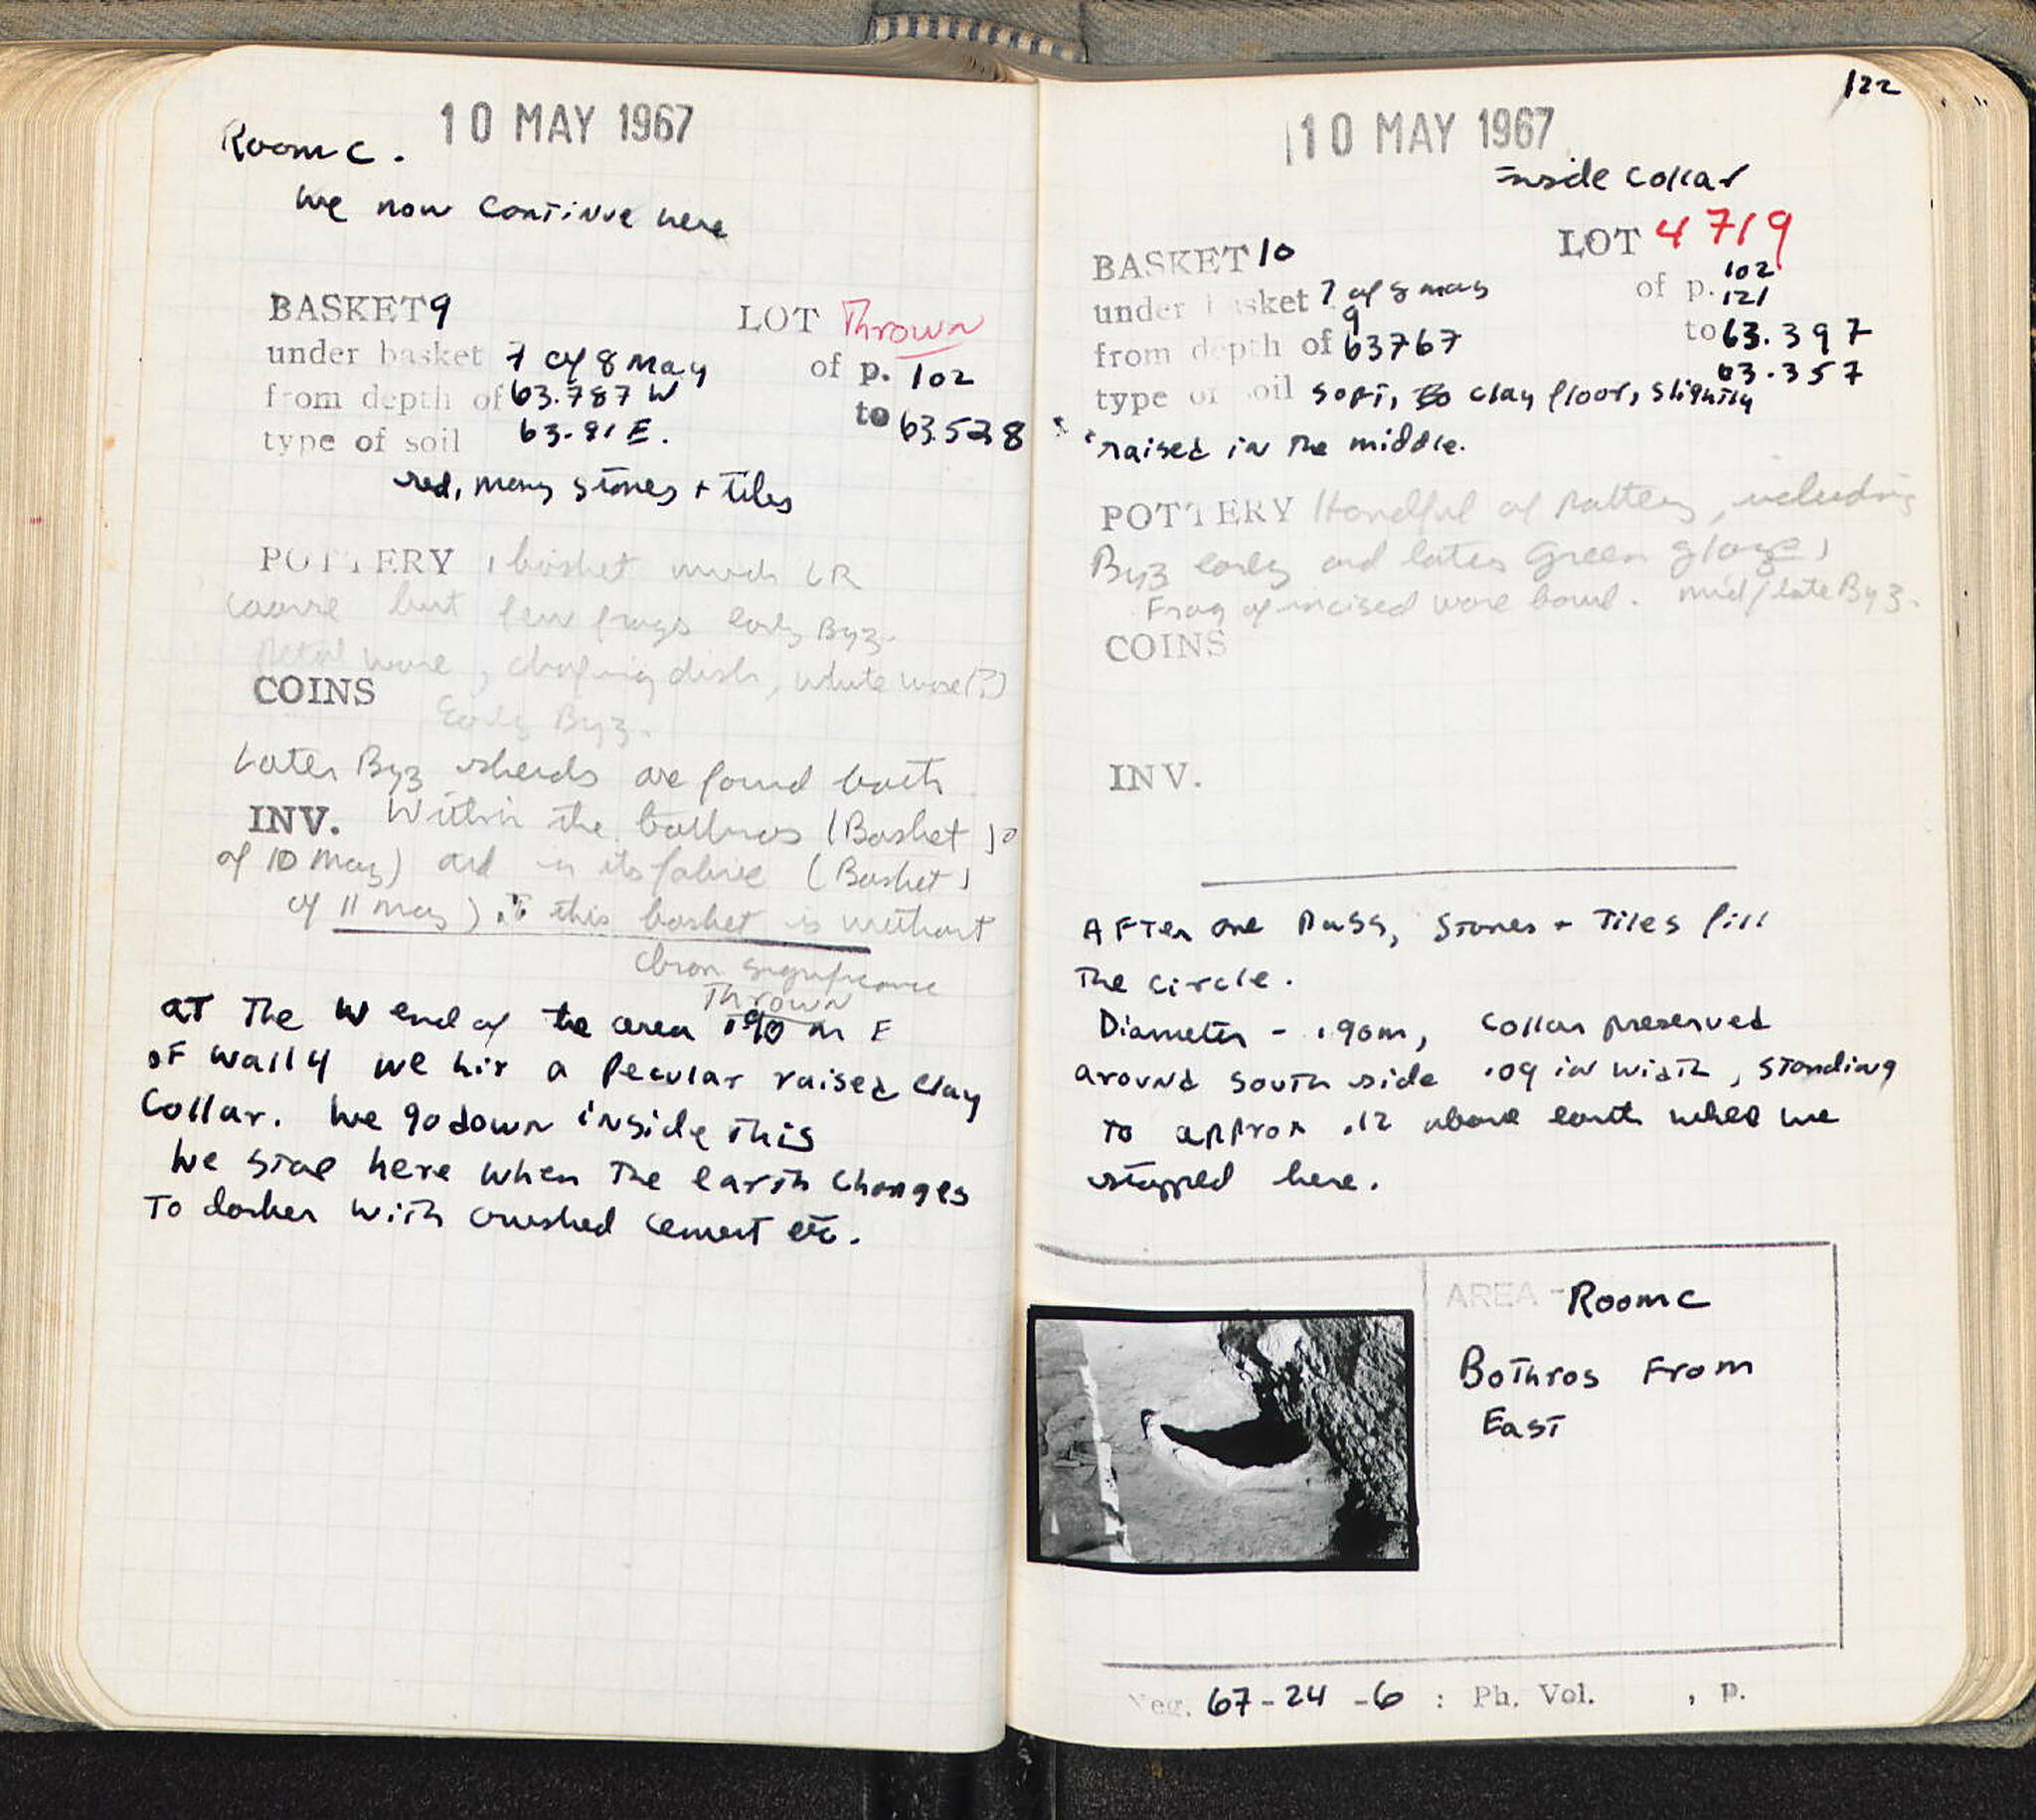 10 MAY 1967
Room C.
We now continue here
BASKET 9 LOT Thrown
under basket 7 of 8 May of p. 102
from depth of 63.787 W to 63.528
type of soil 63.81 E.
red, many stones + tiles
POTTERY 1 basket much LR
coarse but few frags early Byz.
Petal ware, chafing dish, white ware (?)
COINS
Early Byz.
Later Byz sherds are found both
INV. Within the bothros (Basket 10
of 10 May) and in its fabric (Basket 1
of 11 May) . this basket is without
chron significance
Thrown
at The W end of the area .90 m E
of wall 4 we hit a Pecular raised clay
Collar. We go down inside This
We stop here when The earth changes
To darker with crushed cement etc.
122
10 MAY 1967
inside collar
BASKET 10 LOT 4719
under basket 7 of 8 may of p. 102
9 121
from depth of 63767 to 63.397
63.357
type of soil soft, to clay floor, slightly
raised in the middle.
POTTERY Handful of Pottery, including
Byz early and later Green glaze,
Frag of incised ware bowl. mid/late Byz.
COINS
INV.
After one Pass, Stones + Tiles fill
The circle.
Diameter - .90m, Collar preserved
around south side .09 in width, standing
To approx .12 above earth when we
stopped here.
AREA - Room C
Bothros From
East
Neg. 67-24-6 : Ph. Vol. , p.